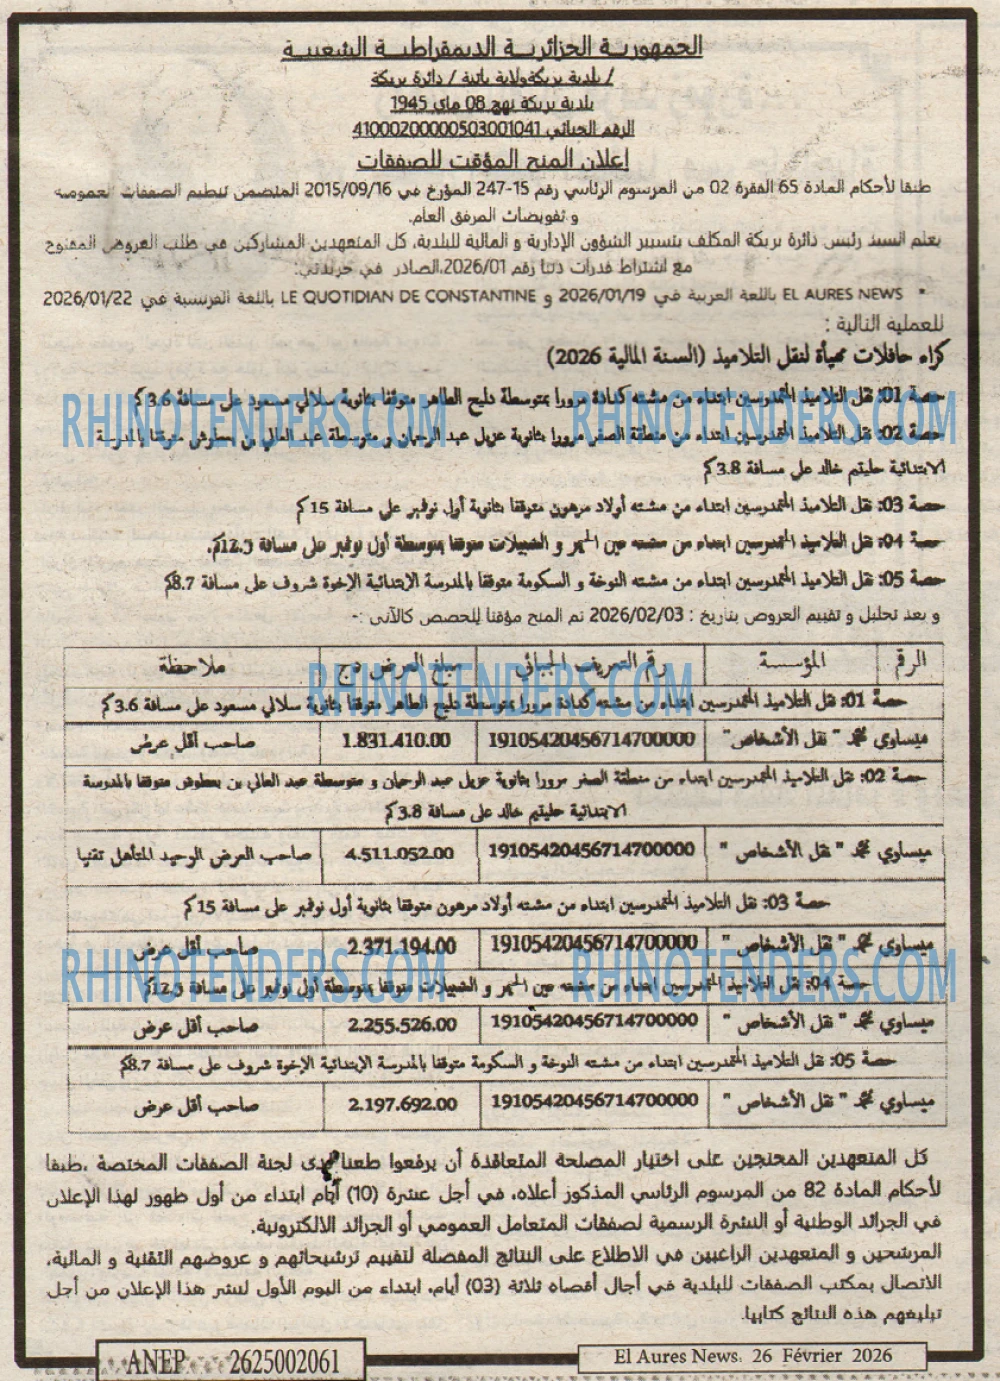 الجمهورية الجزائرية الديمقراطية الشعبية
/ بلدية بريكةولاية باتنة / دائرة بريكة
بلدية بريكة نهج 08 ماي 1945
الرقم الجبائي 41000200000503001041
إعلان المنح المؤقت للصفقات
طبقا لأحكام المادة 65 الفقرة 02 من المرسوم الرئاسي رقم 15-247 المؤرخ في 2015/09/16 المتضمن تنظيم الصفقات العمومية
و تفويضات المرفق العام.
يعلم السيد رئيس دائرة بريكة المكلف بتسيير الشؤون الإدارية و المالية للبلدية، كل المتعهدين المشاركين في طلب العروض المفتوح
مع اشتراط قدرات دنيا رقم 2026/01،الصادر في جريدتي:
▪ EL AURES NEWS باللغة العربية في 2026/01/19 و LE QUOTIDIAN DE CONSTANTINE باللغة الفرنسية في 2026/01/22
للعملية التالية :
كراء حافلات مهيأة لنقل التلاميذ (السنة المالية 2026)
حصة 01: نقل التلاميذ المتمدرسين ابتداء من مشته كدادة مرورا بمتوسطة دليح الطاهر متوقفا بثانوية سلالي مسعود على مسافة 3.6 كم
حصة 02: نقل التلاميذ المتمدرسين ابتداء من منطقة الصفر مرورا بثانوية عزيل عبد الرحمان و متوسطة عبد العالي بن بعطوش متوقفا بالمدرسة
الابتدائية حليتيم خالد على مسافة 3.8كم
حصة 03: نقل التلاميذ المتمدرسين ابتداء من مشته أولاد مرهون متوقفا بثانوية أول نوفمبر على مسافة 15 كم
حصة 04: نقل التلاميذ المتمدرسين ابتداء من مشته عين الحيمر و الضبيلات متوقفا بمتوسطة أول نوفمبر على مسافة 12.5كم.
حصة 05: نقل التلاميذ المتمدرسين ابتداء من مشته النوخة و السكومة متوقفا بالمدرسة الابتدائية الإخوة شروف على مسافة 8.7كم
و بعد تحليل و تقييم العروض بتاريخ : 2026/02/03 تم المنح مؤقتا للحصص كالآتي :-
الرقم المؤسسة رقم التعريف الجبائي مبلغ العرض دج ملاحظة
حصة 01: نقل التلاميذ المتمدرسين ابتداء من مشته كدادة مرورا بمتوسطة دليح الطاهر متوقفا بثانوية سلالي مسعود على مسافة 3.6 كم
ميساوي محمد " نقل الأشخاص" 19105420456714700000 1.831.410.00 صاحب أقل عرض
حصة 02: نقل التلاميذ المتمدرسين ابتداء من منطقة الصفر مرورا بثانوية عزيل عبد الرحمان و متوسطة عبد العالي بن بعطوش متوقفا بالمدرسة
الابتدائية حليتيم خالد على مسافة 3.8كم
ميساوي محمد " نقل الأشخاص " 19105420456714700000 4.511.052.00 صاحب العرض الوحيد المتأهل تقنيا
حصة 03: نقل التلاميذ المتمدرسين ابتداء من مشته أولاد مرهون متوقفا بثانوية أول نوفمبر على مسافة 15 كم
ميساوي محمد " نقل الأشخاص " 19105420456714700000 2.371.194.00 صاحب أقل عرض
حصة 04: نقل التلاميذ المتمدرسين ابتداء من مشته عين الحيمر و الضبيلات متوقفا بمتوسطة أول نوفمبر على مسافة 12.5كم
ميساوي محمد " نقل الأشخاص " 19105420456714700000 2.255.526.00 صاحب أقل عرض
حصة 05: نقل التلاميذ المتمدرسين ابتداء من مشته النوخة و السكومة متوقفا بالمدرسة الابتدائية الإخوة شروف على مسافة 8.7كم
ميساوي محمد " نقل الأشخاص " 19105420456714700000 2.197.692.00 صاحب أقل عرض
كل المتعهدين المحتجين على اختيار المصلحة المتعاقدة أن يرفعوا طعنا لدى لجنة الصفقات المختصة ،طبقا
لأحكام المادة 82 من المرسوم الرئاسي المذكور أعلاه، في أجل عشرة (10) أيام ابتداء من أول ظهور لهذا الإعلان
في الجرائد الوطنية أو النشرة الرسمية لصفقات المتعامل العمومي أو الجرائد الالكترونية.
المرشحين و المتعهدين الراغبين في الاطلاع على النتائج المفصلة لتقييم ترشيحاتهم و عروضهم التقنية و المالية،
الاتصال بمكتب الصفقات للبلدية في أجال أقصاه ثلاثة (03) أيام، ابتداء من اليوم الأول لنشر هذا الإعلان من أجل
تبليغهم هذه النتائج كتابيا.
ANEP 2625002061
El Aures News: 26 Février 2026
RHINOTENDERS.COM
RHINOTENDERS.COM
RHINOTENDERS.COM
RHINOTENDERS.COM
RHINOTENDERS.COM